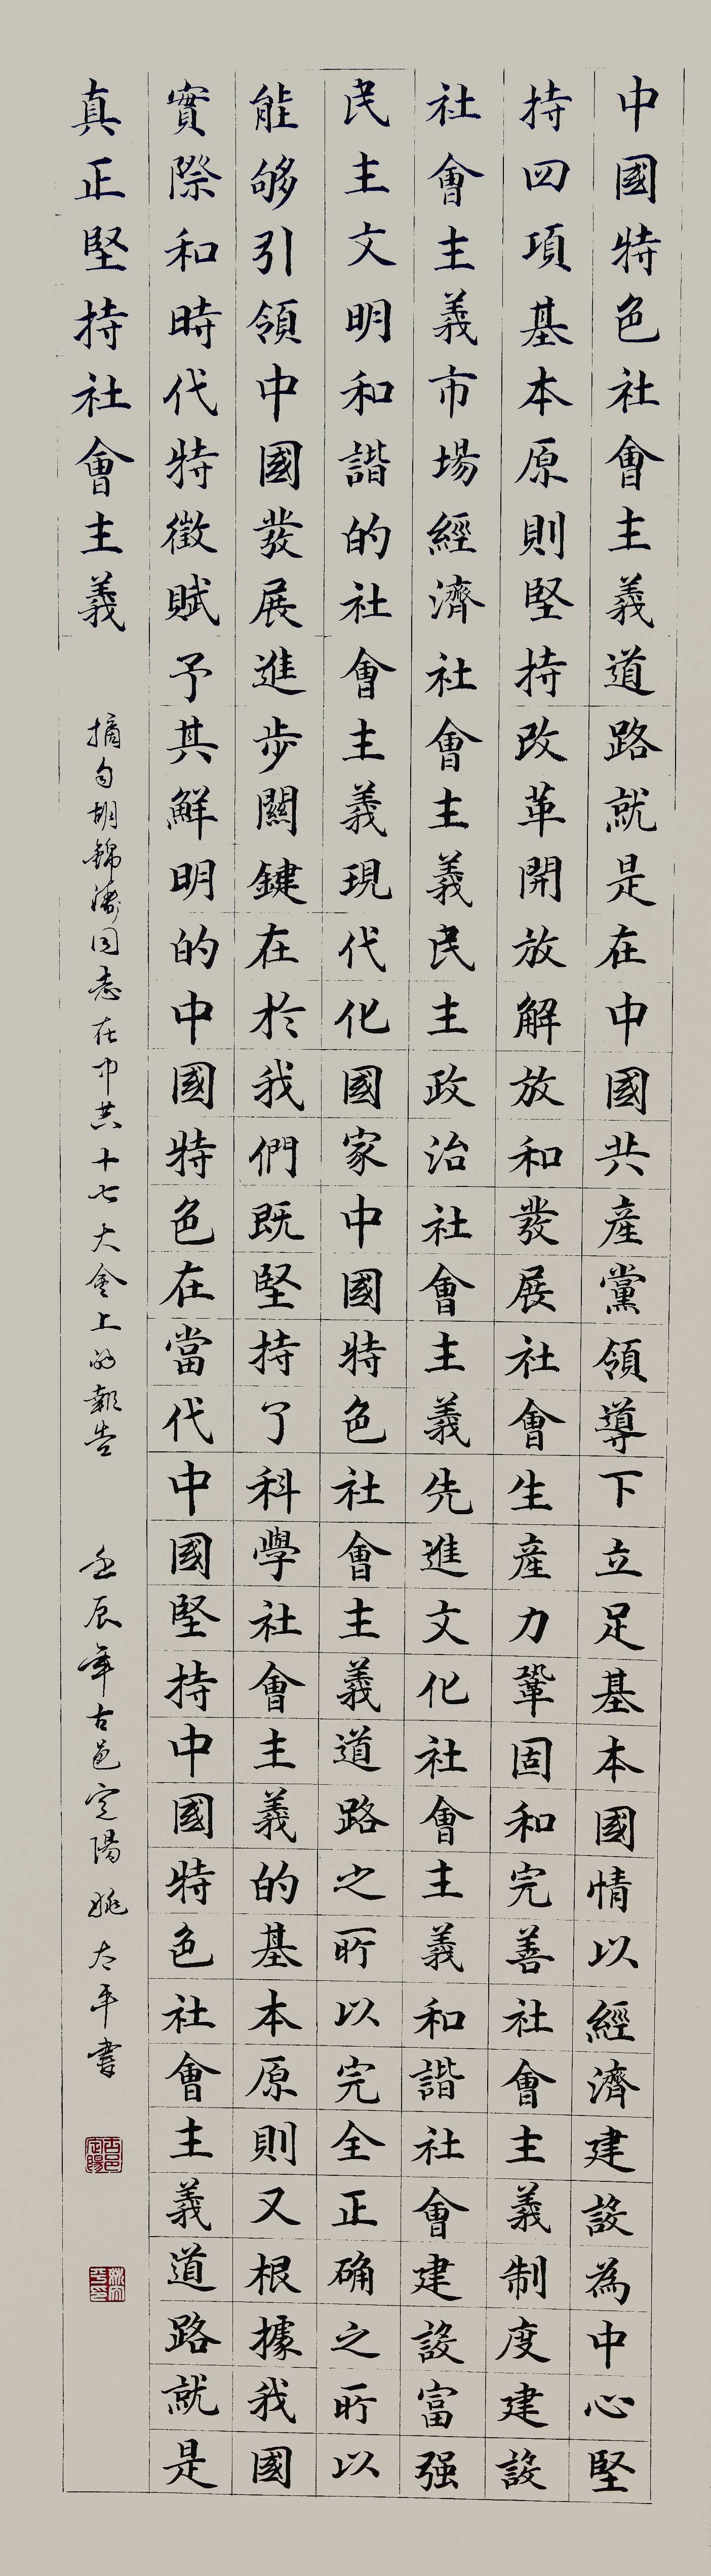 中國特色社會主義道路就是在中國共產黨領導下立足基本國情以經濟建設為中心堅
持四項基本原則堅持改革開放解放和發展社會生產力鞏固和完善社會主義制度建設
社會主義市場經濟社會主義民主政治社會主義先進文化社會主義和諧社會建設富强
民主文明和諧的社會主義現代化國家中國特色社會主義道路之所以完全正确之所以
能够引領中國發展進步關鍵在於我們既堅持了科學社會主義的基本原則又根據我國
實際和時代特徵賦予其鮮明的中國特色在當代中國堅持中國特色社會主義道路就是
真正堅持社會主義
摘句胡錦濤同志在中共十七大會上的報告
壬辰年古邑定陽姚太平書
古邑定陽